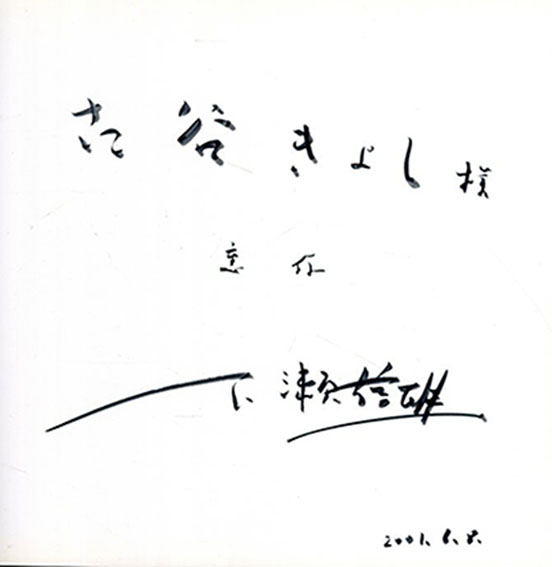 古谷きよし様
恵存
下瀬信雄
2001.6.8.